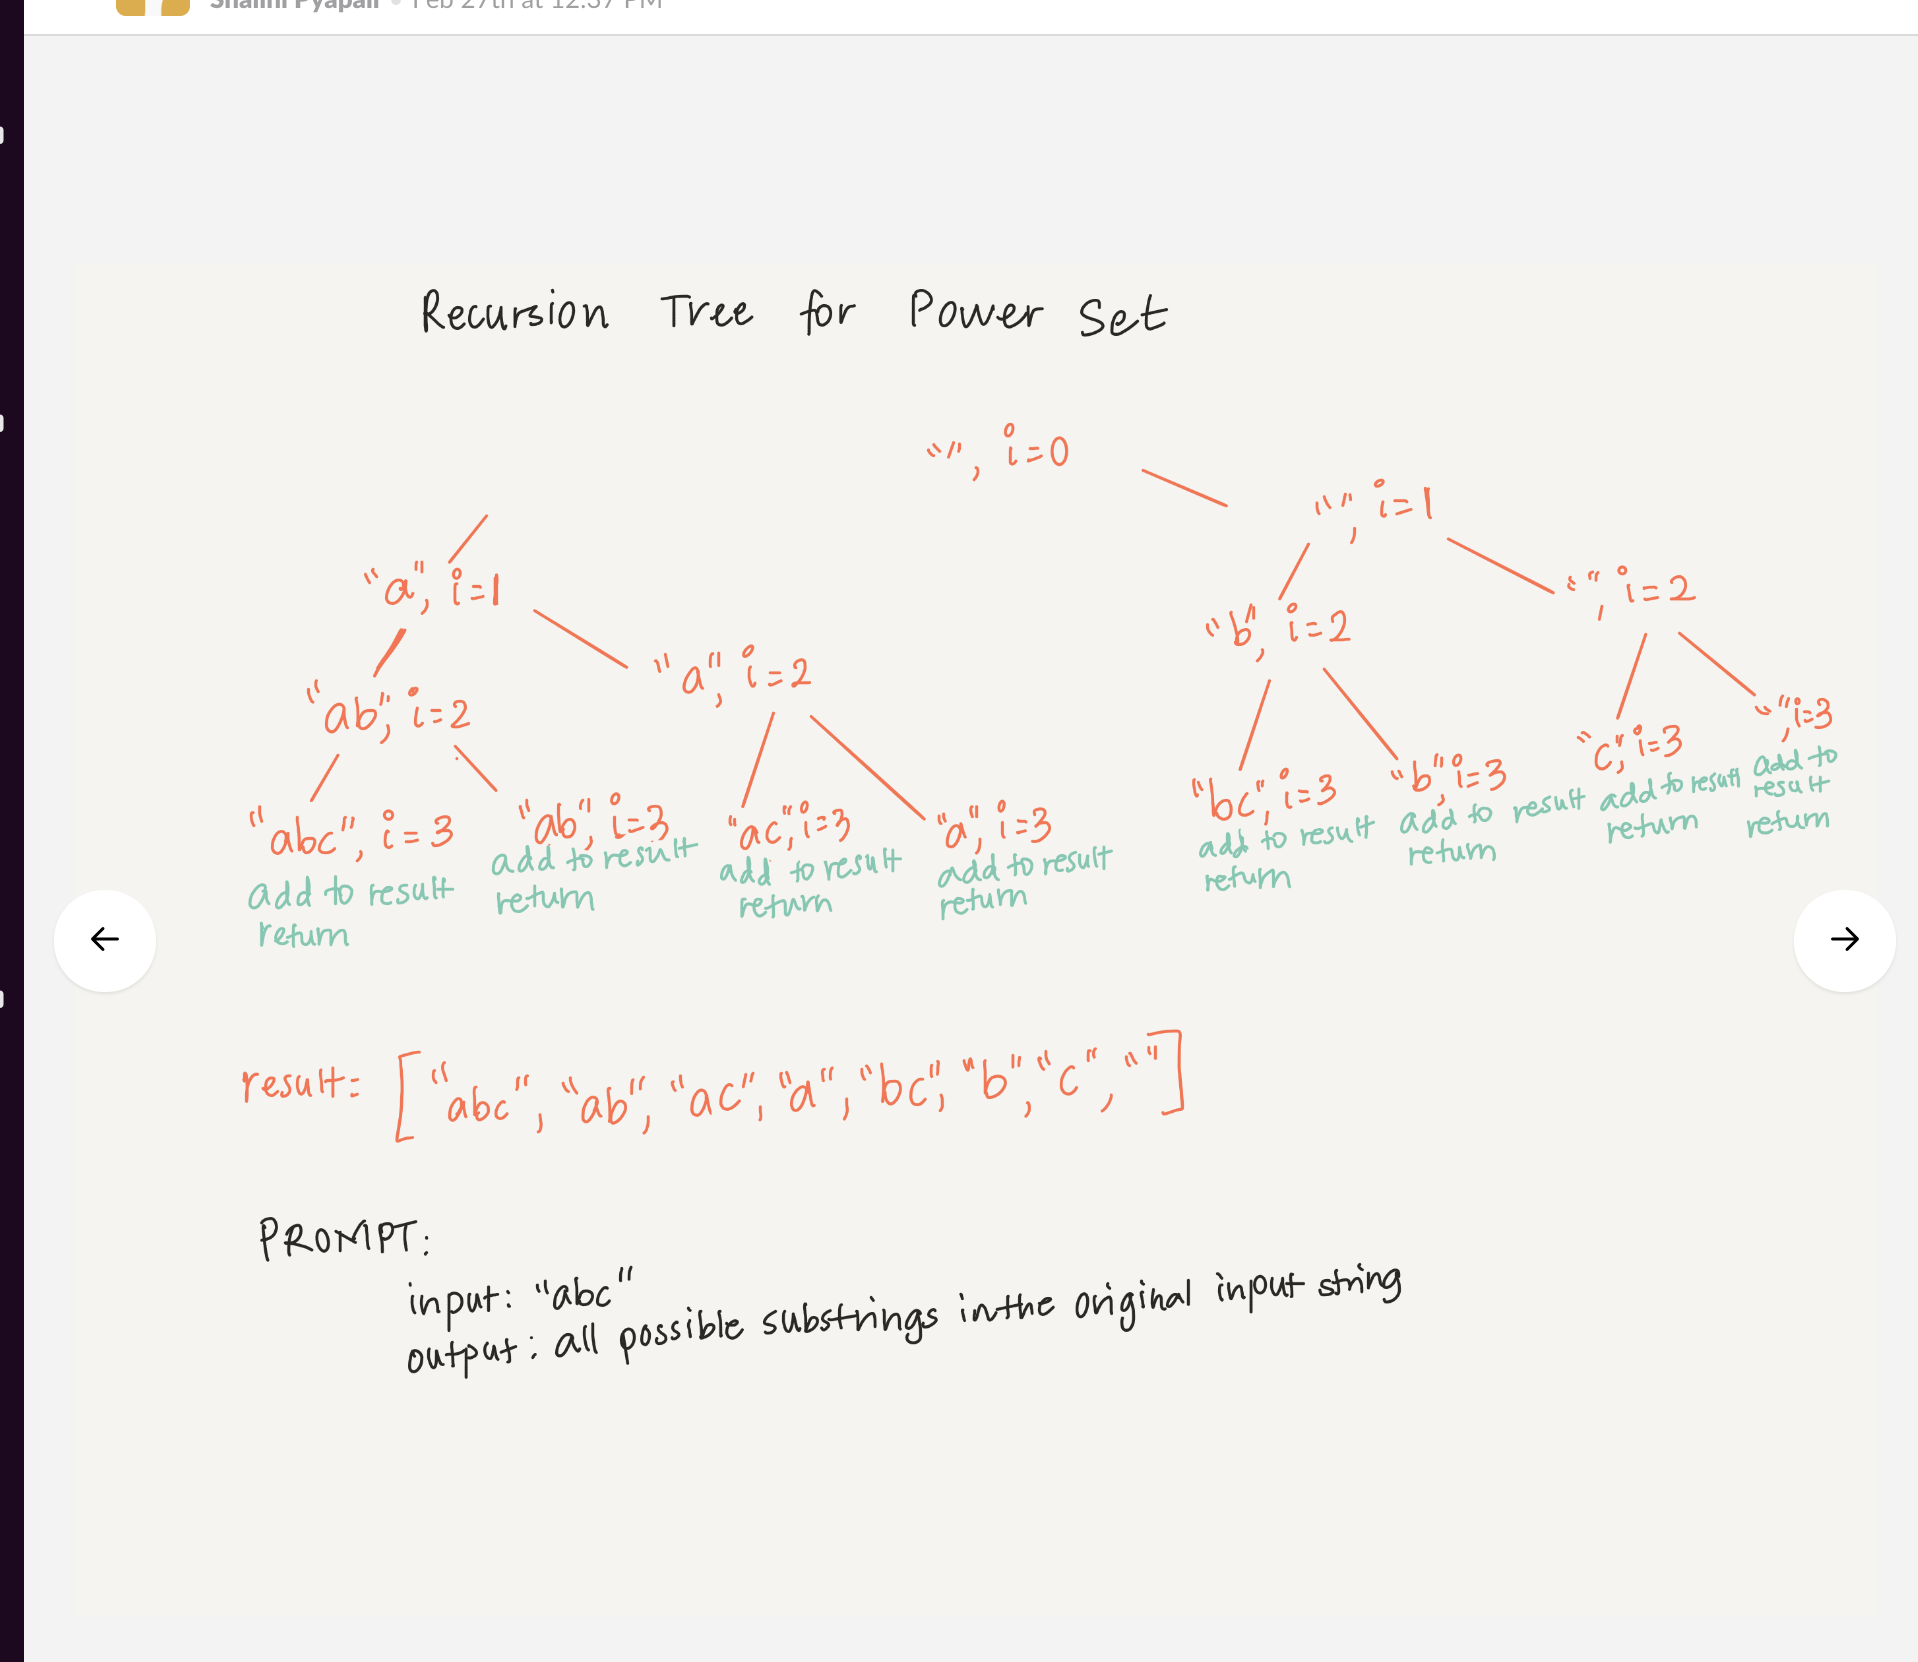 Shalini Pyapali • Feb 27th at 12:37 PM
Recursion Tree for Power Set
“”, i=0
“”, i=1
“a”, i=1
“”, i=2
“b”, i=2
“a”, i=2
“ab”, i=2
“”, i=3
add to
result
return
“c”, i=3
add to result
return
“b”, i=3
add to result
return
“bc”, i=3
add to result
return
“abc”, i=3
add to result
return
“ab”, i=3
add to result
return
“ac”, i=3
add to result
return
“a”, i=3
add to result
return
result= [“abc”, “ab”, “ac”, “a”, “bc”, “b”, “c”, “”]
PROMPT:
input: “abc”
output: all possible substrings in the original input string